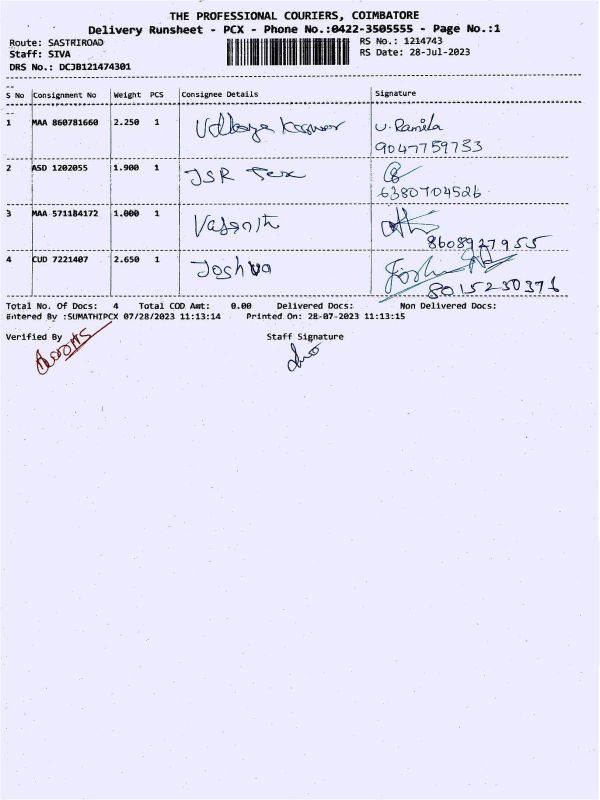 THE PROFESSIONAL COURIERS, COIMBATORE
Delivery Runsheet - PCX - Phone No.:0422-3505555 - Page No.:1
Route: SASTRIROAD RS No.: 1214743
Staff: SIVA RS Date: 28-Jul-2023
DRS No.: DCJB121474301
S No Consignment No Weight PCS Consignee Details Signature
1 MAA 860781660 2.250 1 Kumar U. Ramila
9047759733
2 ASD 1202055 1.900 1 JSR Tex
6380704526
3 MAA 571184172 1.000 1 Vasanth
8608927955
4 CUD 7221407 2.650 1 Joshua
8015230371
Total No. Of Docs: 4 Total COD Amt: 0.00 Delivered Docs: Non Delivered Docs:
Entered By :SUMATHIPCX 07/28/2023 11:13:14 Printed On: 28-07-2023 11:13:15
Verified By Staff Signature